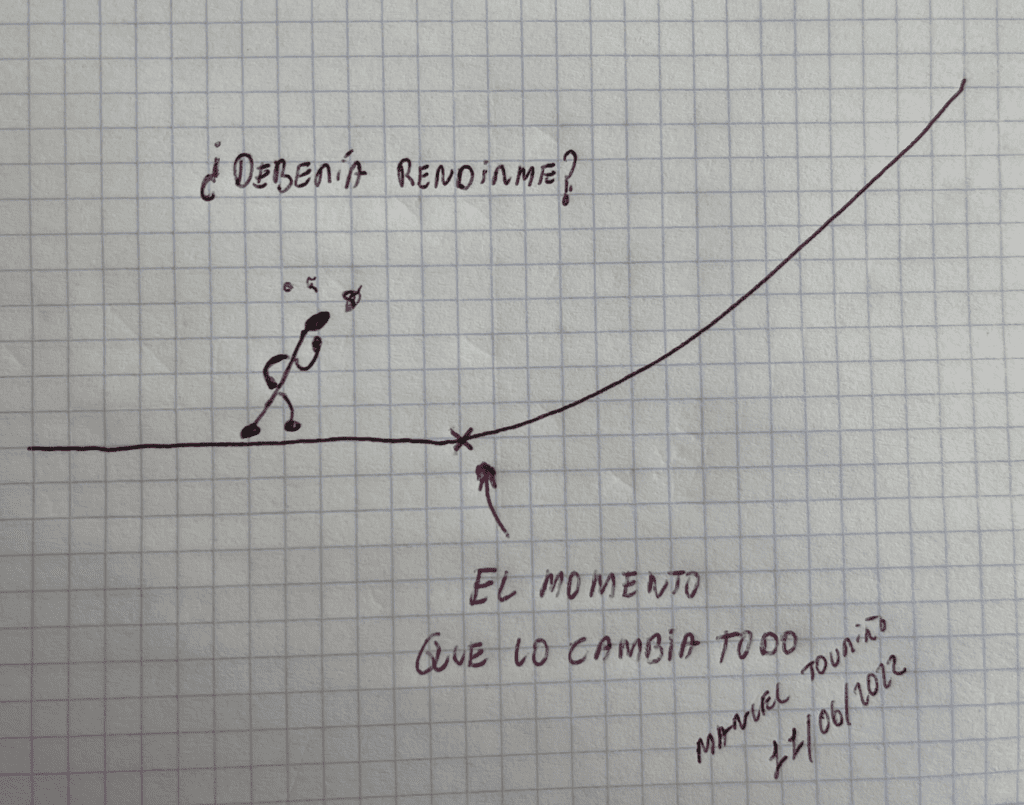 ¿DEBERÍA RENDIRME?
EL MOMENTO
QUE LO CAMBIA TODO
MANUEL TOURIÑO
11/06/2022